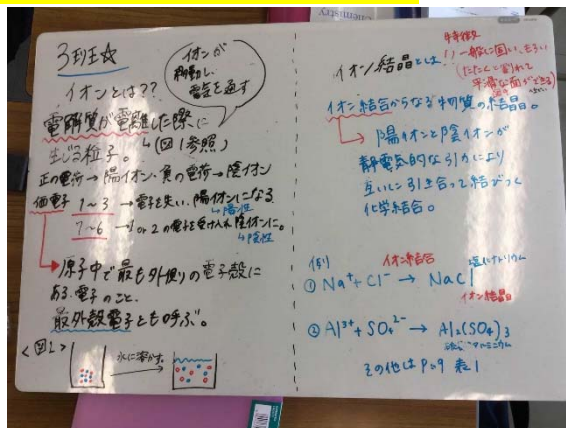 3班☆
イオンとは??
イオンが
移動し、
電気を通す
電解質が電離した際に
生じる粒子。
(図1参照)
正の電荷→陽イオン・負の電荷→陰イオン
価電子 1〜3 →電子を失い、陽イオンになる
陽性
7〜6 →1or2の電子を受け入れ陰イオンに。
陰性
原子中で最も外側の電子殻に
ある電子のこと。
最外殻電子とも呼ぶ。
<図1>
水に溶かす。
イオン結晶とは
特徴
1) 一般に固い、もろい
(たたくと割れて
平滑な面ができる)
イオン結合からなる物質の結晶。
陽イオンと陰イオンが
静電気的な引力により
互いに引き合って結びつく
化学結合。
例)
イオン結合
塩化ナトリウム
① Na⁺+Cl⁻ → NaCl
イオン結晶
② Al³⁺+SO₄²⁻ → Al₂(SO₄)₃
硫酸アルミニウム
その他は P29 表1